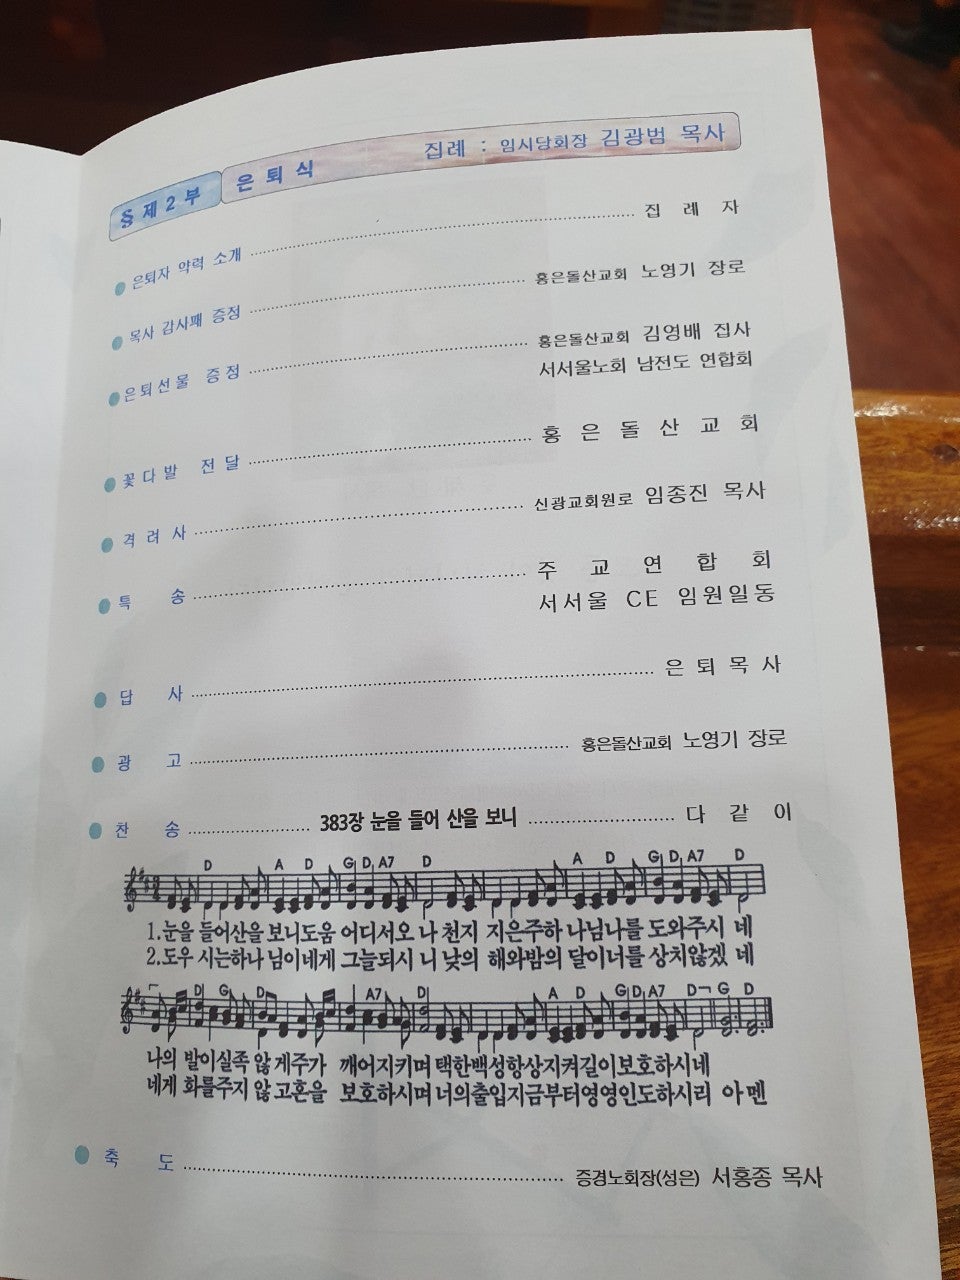 § 제 2 부 은 퇴 식 집례 : 임시당회장 김광범 목사
은퇴자 약력 소개 집 례 자
목사 감사패 증정 홍은돌산교회 노영기 장로
은퇴선물 증정 홍은돌산교회 김영배 집사
서서울노회 남전도 연합회
꽃다발 전달 홍 은 돌 산 교 회
격 려 사 신광교회원로 임종진 목사
특 송 주 교 연 합 회
서서울 CE 임원일동
답 사 은 퇴 목 사
광 고 홍은돌산교회 노영기 장로
찬 송 383장 눈을 들어 산을 보니 다 같 이
D A D G D A7 D A D G D A7 D
1.눈을 들어산을 보니도움 어디서오 나 천지 지은주하 나님나를 도와주시 네
2.도우 시는하나 님이네게 그늘되시 니 낮의 해와밤의 달이너를 상치않겠 네
D G D A7 D A D G D A7 D G D
나의 발이실족 않게주가 깨어지키며 택한백성항상지켜길이보호하시네
네게 화를주지 않고혼을 보호하시며 너의출입지금부터영영인도하시리 아멘
축 도 증경노회장(성은) 서홍종 목사